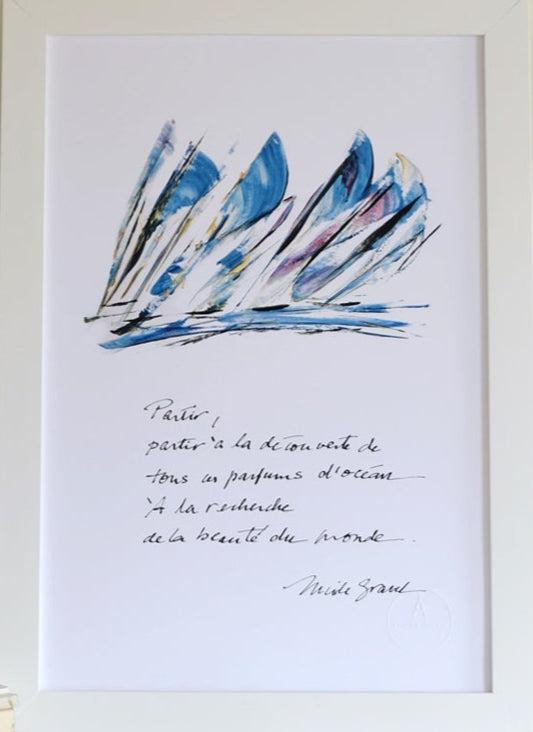 Partir,
partir à la découverte de
tous ces parfums d'océan
À la recherche
de la beauté du monde.
Nicole